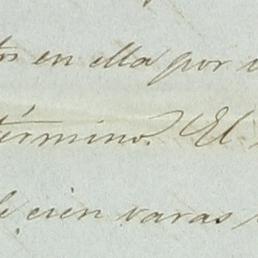 en ella por
término. El
cien varas